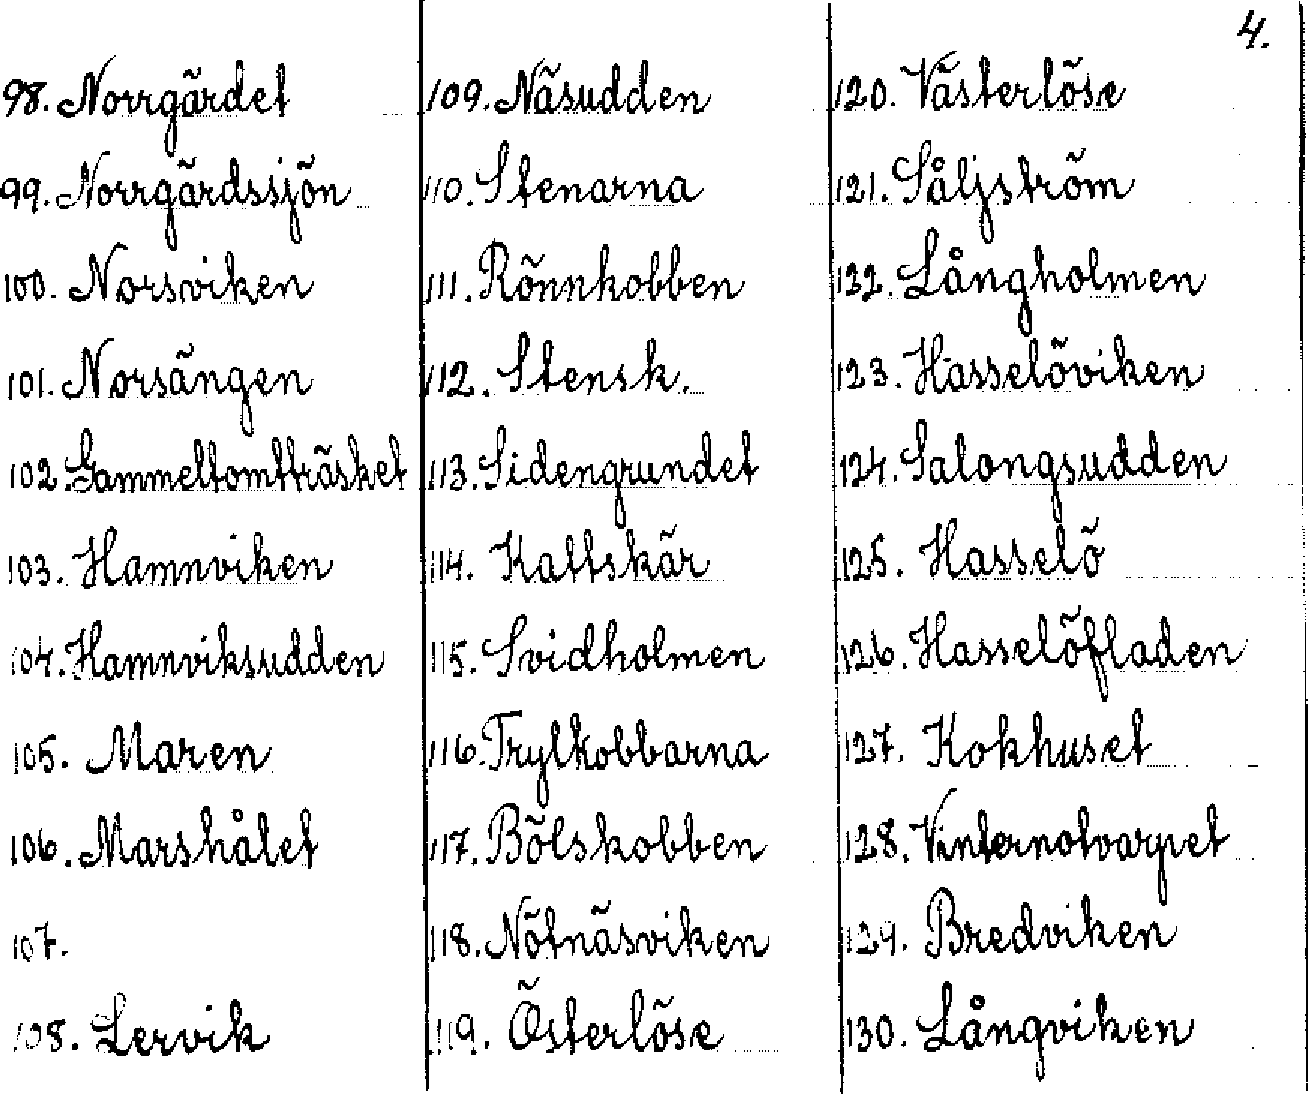 4.
98. Norrgärdet
99. Norrgärdssjön
100. Norsviken
101. Norsängen
102. Gammeltomtträsket
103. Hamnviken
104. Hamnviksudden
105. Maren
106. Marshålet
107.
108. Lervik
109. Näsudden
110. Stenarna
111. Rönnkobben
112. Stensk.
113. Sidengrundet
114. Kattskär
115. Svidholmen
116. Trylkobbarna
117. Bölskobben
118. Nötnäsviken
119. Österlöse
120. Västerlöse
121. Såljström
132. Långholmen
123. Hasselöviken
124. Salongsudden
125. Hasselö
126. Hasselöfladen
127. Kokhuset
128. Vinternotvarpet
129. Bredviken
130. Långviken